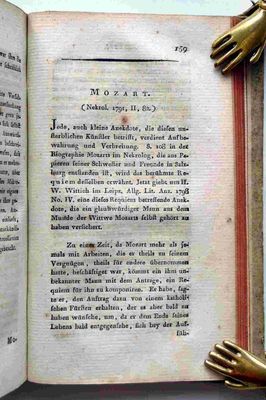 159
MOZART.
(Nekrol. 1791, II, 82.)
Jede, auch kleine Anekdote, die diesen un-
sterblichen Künstler betrifft, verdient Aufbe-
wahrung und Verbreitung. S. 108 in der
Biographie Mozarts im Nekrolog, die aus Pa-
pieren seiner Schwester und Freunde in Salz-
burg entstanden ist, wird das berühmte Re-
quiem desselben erwähnt. Jetzt giebt uns H.
W. Wittich im Leipz. Allg. Lit. Anz. 1798
No. IV. eine dieses Requiem betreffende Anek-
dote, die ein glaubwürdiger Mann aus dem
Munde der Wittwe Mozarts selbst gehört zu
haben versichert.
Zu einer Zeit, da Mozart mehr als je-
mals mit Arbeiten, die er theils zu seinem
Vergnügen, theils für andere übernommen
hatte, beschäftiget war, kömmt ein ihm un-
bekannter Mann mit dem Antrage, ein Re-
quiem für ihn zu komponiren. Er habe, sag-
te er, den Auftrag dazu von einem katholi-
schen Fürsten erhalten, der es aber bald zu
haben wünsche, um, da er dem Ende seines
Lebens bald entgegensehe, sich bey der Auf-
füh-
Mo-